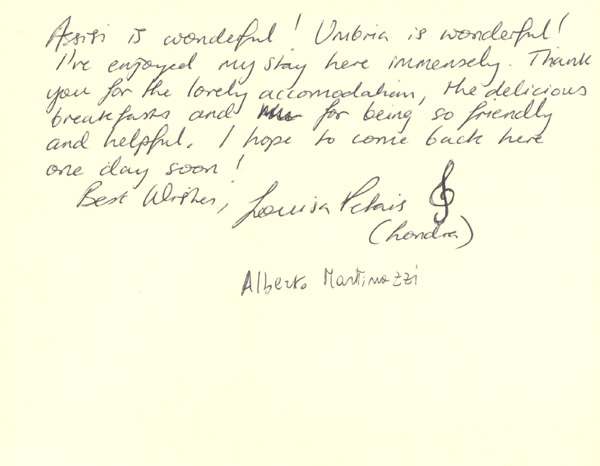 Assisi is wondeful! Umbria is wonderful!
I've enjoyed my stay here immensely. Thank
you for the lovely accomodation, the delicious
breakfasts and for being so friendly
and helpful. I hope to come back here
one day soon!
Best Wishes, Louisa
(Londra)
Alberto Martinozzi